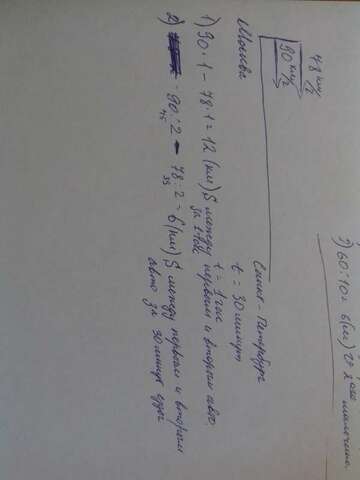 2) 60:10 = 6 (км)
мальчика.
78 км/ч
90 км/ч
Москва
Санкт-Петербург
t = 30 минут
t = 1 час
1) 90·1 – 78·1 = 12 (км) S между первым и вторым авто,
за 1 час
2) 90:2 – 78:2 = 6 (км) S между первым и вторым
45
авто за 30 минут